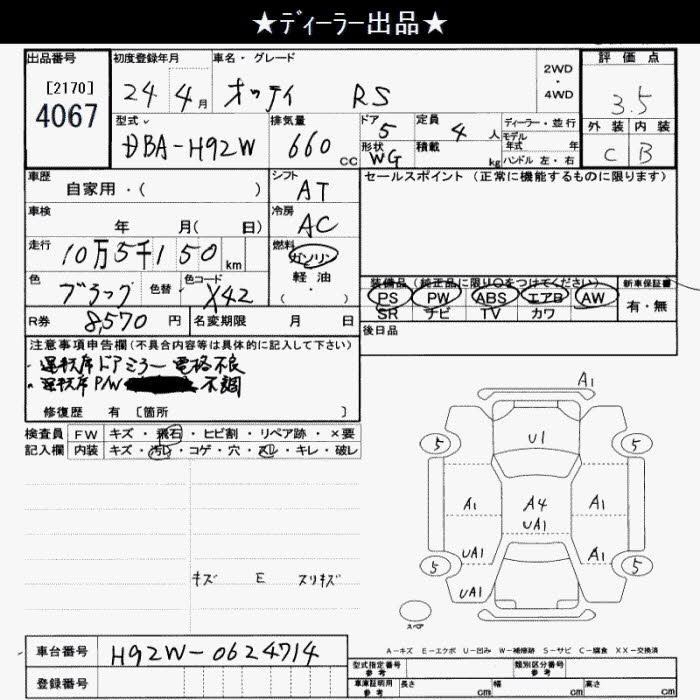 ★ディーラー出品★
出品番号 初度登録年月 車名・グレード 評価点
[2170] 24 4月 オッティ RS 2WD ・ 4WD 3.5
4067 型式 排気量 ドア 5 定員 4人 ディーラー・並行 外装 内装
DBA-H92W 660 CC 形状 WG 積載 kg モデル年式 年 C B
ハンドル 左・右
車歴 自家用・( ) シフト AT セールスポイント (正常に機能するものに限ります)
車検 年 月( 日) 冷房 AC
走行 10万5千150 km 燃料 ガソリン ・ 軽油 ・ ( )
色 ブラック 色替 色コード X42
装備品 (純正品に限り○をつけてください) 新車保証書
PS PW ABS エアB AW 有・無
SR ナビ TV カワ
R券 8,570 円 名変期限 月 日 後日品
注意事項申告欄(不具合内容等は具体的に記入して下さい)
・運転席ドアミラー電格不良
・運転席P/W 不調
修復歴 有 [箇所 ]
検査員 FW キズ・飛石・ヒビ割・リペア跡・×要
記入欄 内装 キズ・汚レ・コゲ・穴・スレ・キレ・破レ
A1
5 U1 5
A1 A4 A1
UA1
UA1 A1
5 UA1 5
キズ E スリキズ
スペア
A-キズ E-エクボ U-凹み W-補修跡 S-サビ C-腐食 XX-交換済
車台番号 H92W-0624714 型式指定番号 参考 類別区分番号 参考
登録番号 車庫証明用 参考 長さ cm 幅 cm 高さ cm